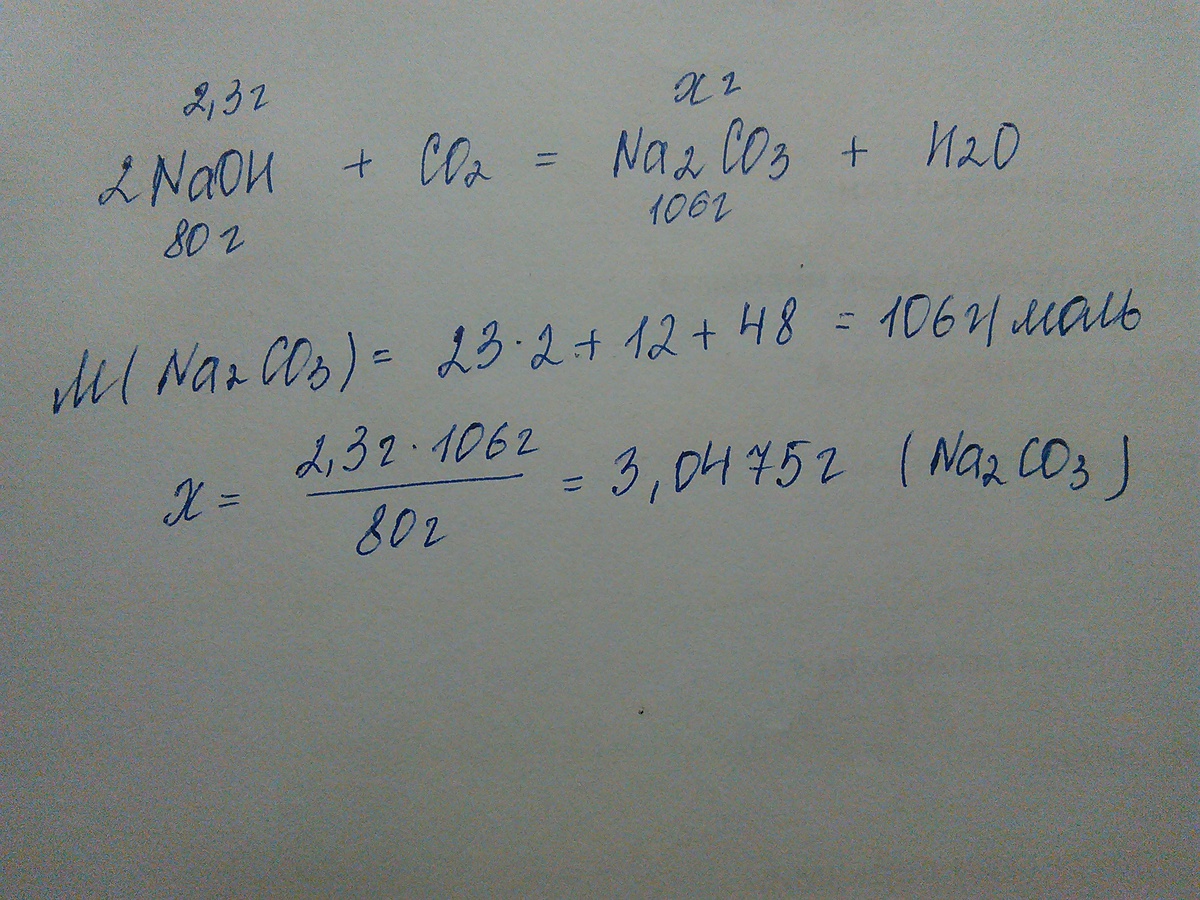 2,3г х г
2NaOH + CO2 = Na2CO3 + H2O
80 г 106г
M(Na2CO3) = 23·2 + 12 + 48 = 106г/моль
х = 2,3г·106г / 80г = 3,0475г (Na2CO3)